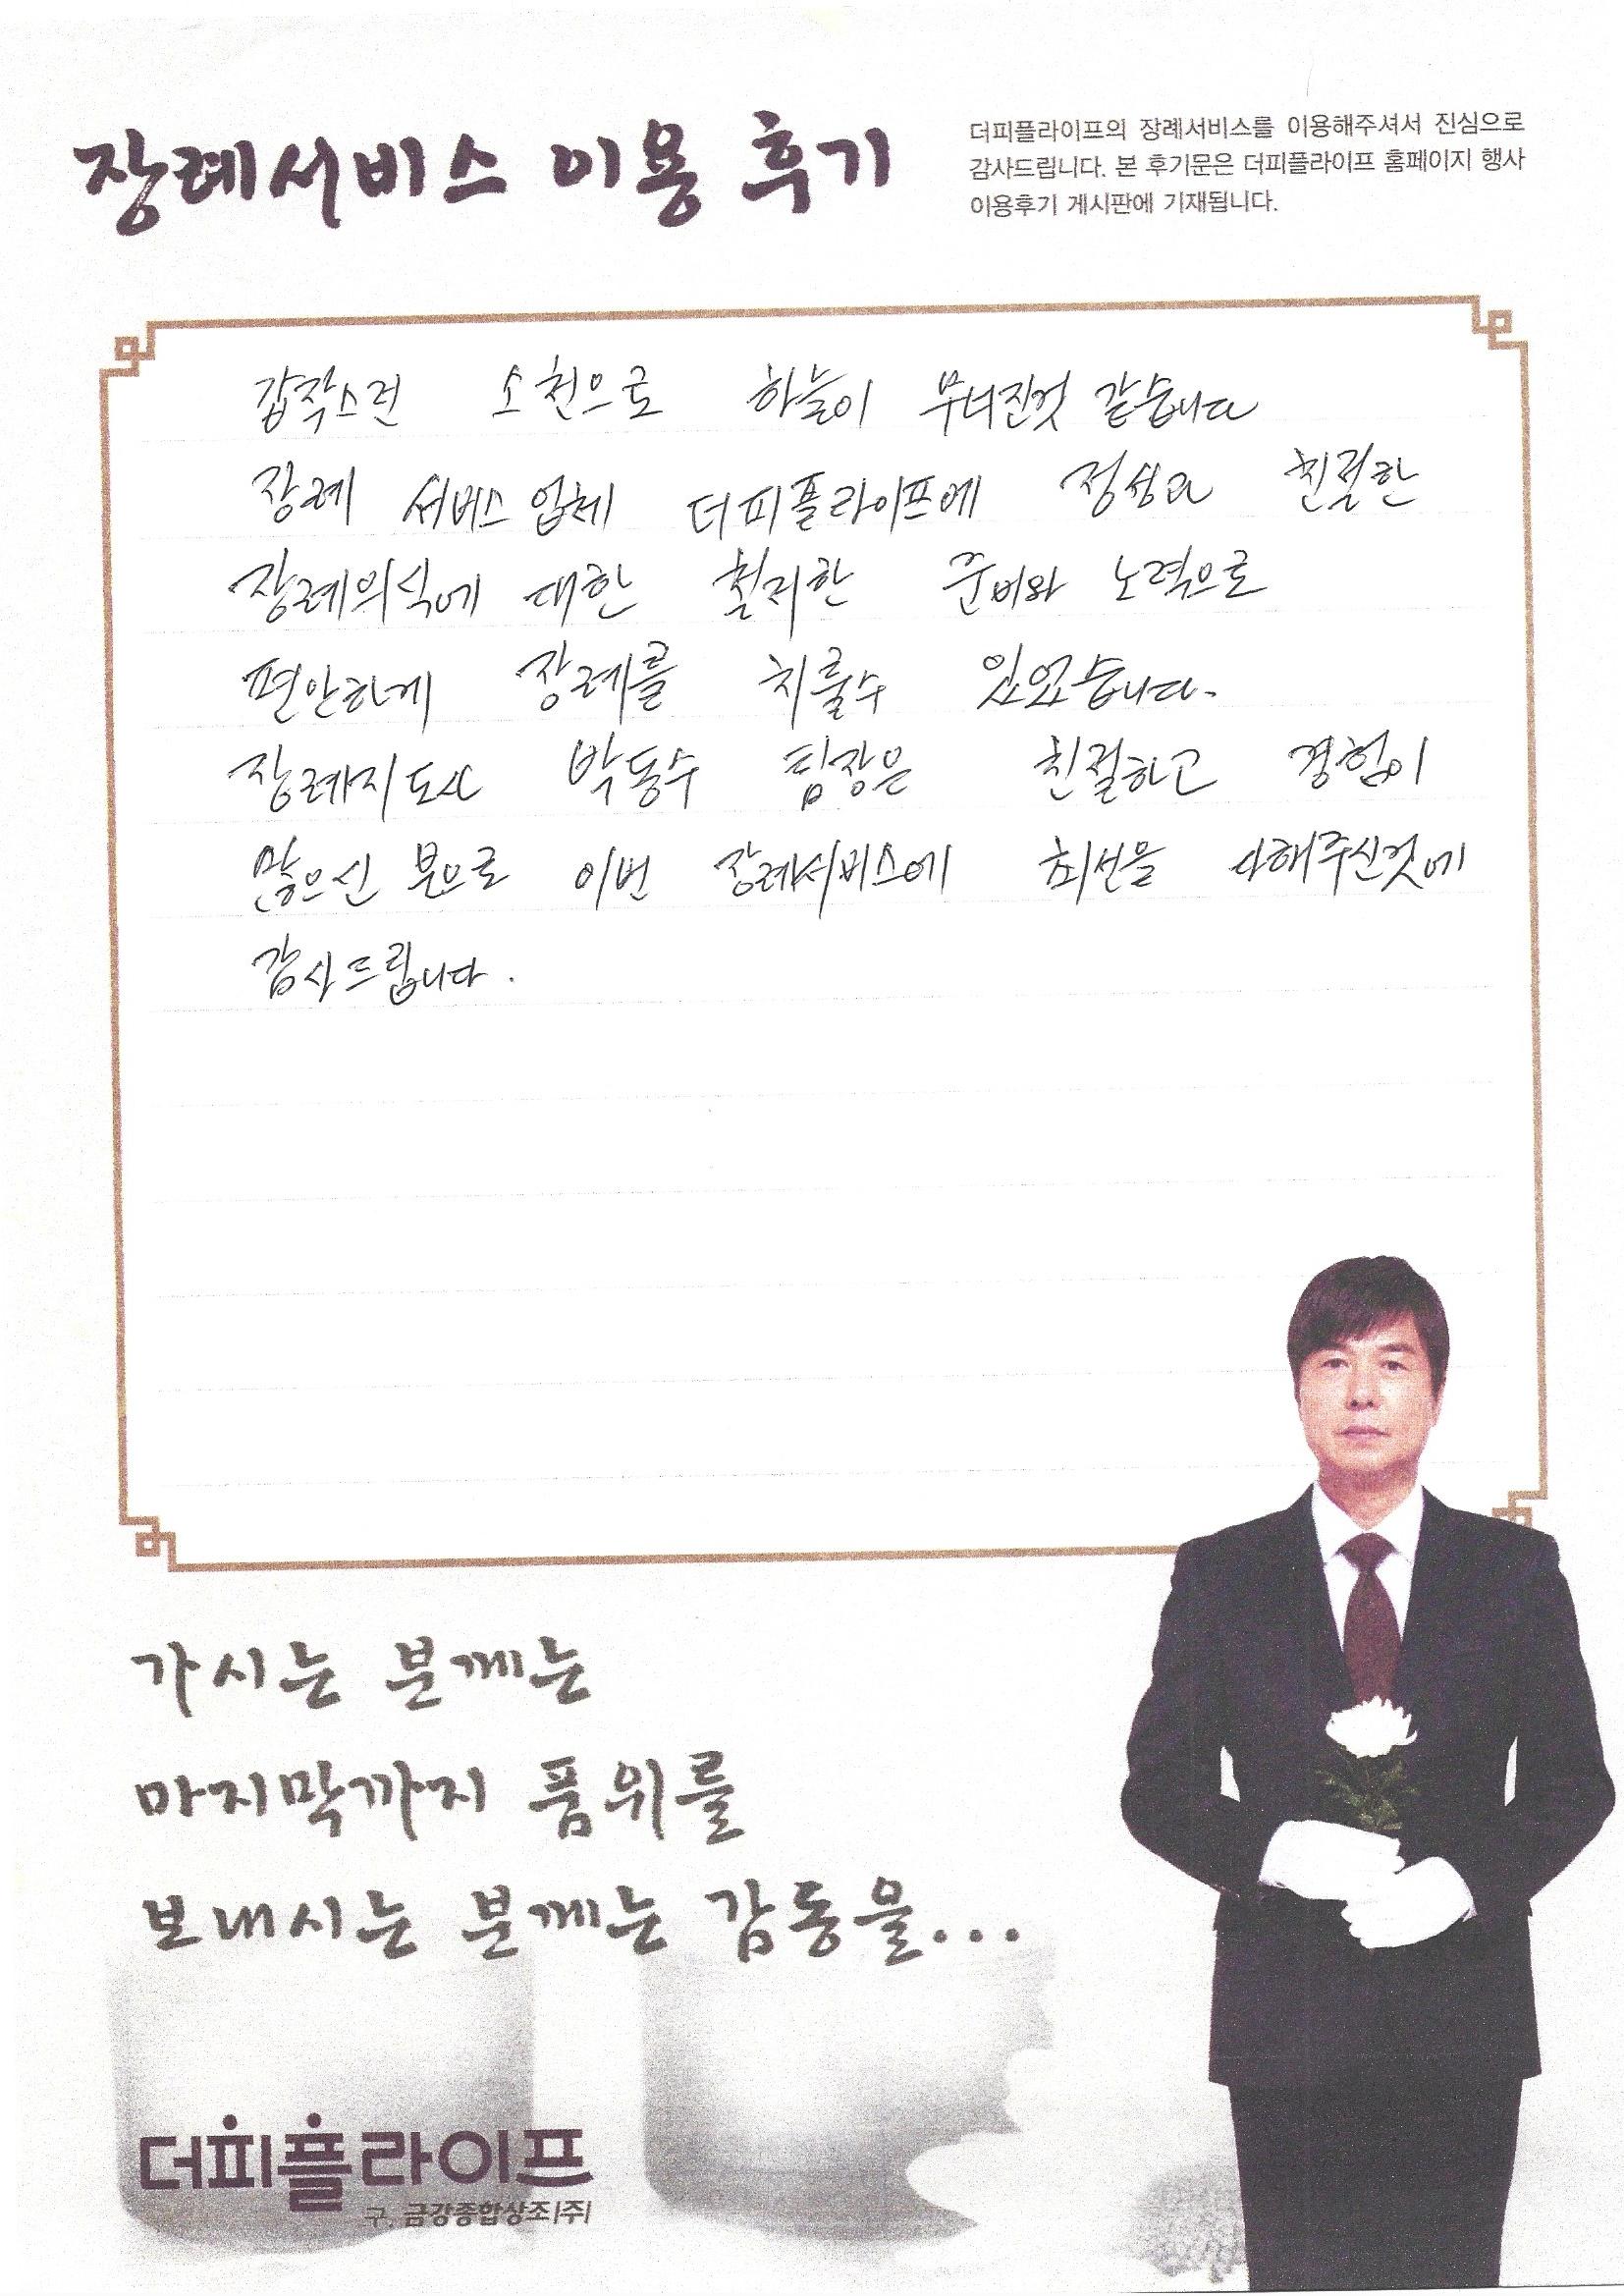 장례서비스 이용 후기
더피플라이프의 장례서비스를 이용해주셔서 진심으로
감사드립니다. 본 후기문은 더피플라이프 홈페이지 행사
이용후기 게시판에 기재됩니다.
갑작스런 소천으로 하늘이 무너진것 같습니다
장례 서비스 업체 더피플라이프에 정성과 친절한
장례의식에 대한 철저한 준비와 노력으로
편안하게 장례를 치룰수 있었습니다.
장례지도사 박동수 팀장은 친절하고 경험이
많으신 분으로 이번 장례서비스에 최선을 다해주신것에
감사드립니다.
가시는 분께는
마지막까지 품위를
보내시는 분께는 감동을...
더피플라이프
구. 금강종합상조(주)